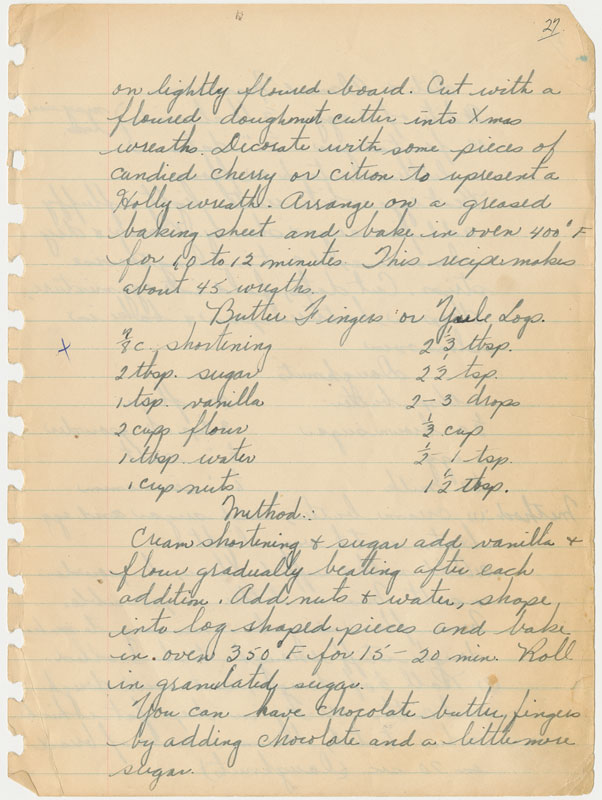 27
on lightly floured board. Cut with a
floured doughnut cutter into Xmas
wreaths. Decorate with some pieces of
candied cherry or citron to represent a
Holly wreath. Arrange on a greased
baking sheet and bake in oven 400° F
for 10 to 12 minutes. This recipe makes
about 45 wreaths.
Butter Fingers or Yule Logs.
x 7/8 c. shortening 2 1/3 tbsp.
2 tbsp. sugar 2 1/2 tsp.
1 tsp. vanilla 2-3 drops
2 cups flour 1/3 cup
1 tbsp. water 1/2 - 1 tsp.
1 cup nuts 1 1/2 tbsp.
Method:
Cream shortening + sugar add vanilla +
flour gradually beating after each
addition. Add nuts + water, shape
into log shaped pieces and bake
in oven 350° F for 15-20 min. Roll
in granulated sugar.
You can have chocolate butter fingers
by adding chocolate and a little more
sugar.